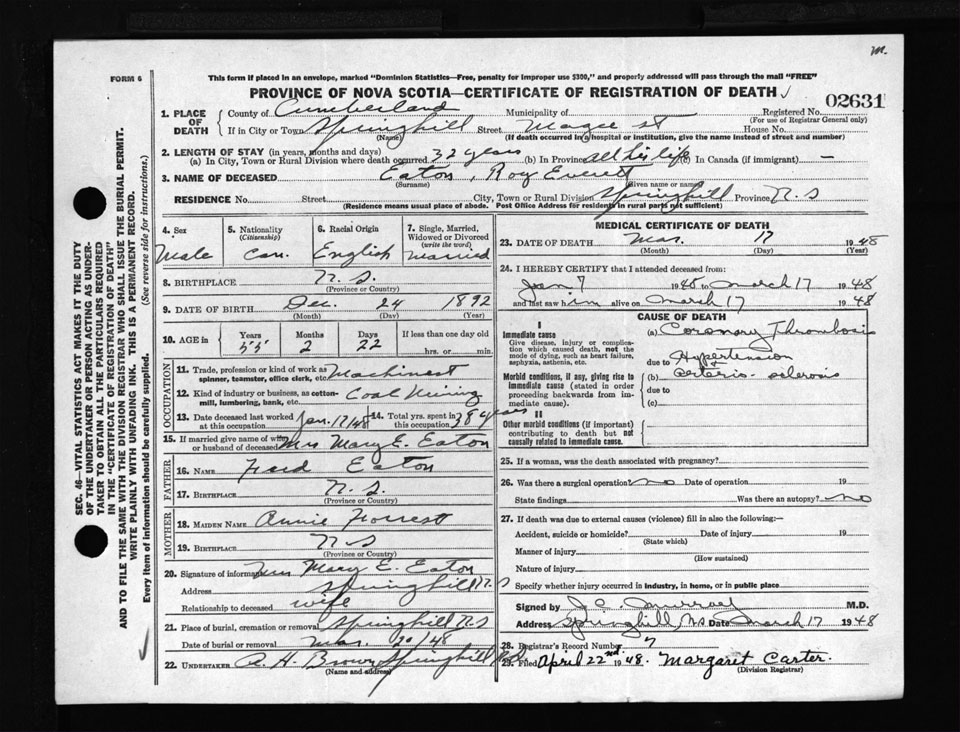 m.
FORM 6
This form if placed in an envelope, marked "Dominion Statistics—Free, penalty for improper use $300," and properly addressed will pass through the mail "FREE"
PROVINCE OF NOVA SCOTIA—CERTIFICATE OF REGISTRATION OF DEATH ✓
02631
1. PLACE OF DEATH
County of Cumberland Municipality of Registered No.
(For use of Registrar General only)
If in City or Town Springhill Street Magee st House No.
(Name) (If death occurred in a hospital or institution, give the name instead of street and number)
2. LENGTH OF STAY (in years, months and days)
(a) In City, Town or Rural Division where death occurred 32 years (b) In Province all his life (c) In Canada (if immigrant) —
3. NAME OF DECEASED Eaton, Roy Everett
(Surname) (Given name or names)
RESIDENCE No. Street City, Town or Rural Division Springhill Province N.S
(Residence means usual place of abode. Post Office Address for residents in rural parts not sufficient)
4. Sex 5. Nationality 6. Racial Origin 7. Single, Married,
(Citizenship) Widowed or Divorced
(write the word)
Male Can. English Married
8. BIRTHPLACE N.S.
(Province or Country)
9. DATE OF BIRTH Dec. 24 1892
(Month) (Day) (Year)
10. AGE in Years Months Days If less than one day old
55 2 22 hrs. or min.
OCCUPATION
11. Trade, profession or kind of work as Machinest
spinner, teamster, office clerk, etc.
12. Kind of industry or business, as cotton- Coal Mining
mill, lumbering, bank, etc.
13. Date deceased last worked at this occupation Jan. 17/48 14. Total yrs. spent in this occupation 38 years
15. If married give name of wife or husband of deceased Mrs Mary E. Eaton
FATHER
16. NAME Eaton
17. BIRTHPLACE N.S.
(Province or Country)
MOTHER
18. MAIDEN NAME Annie Forrest
19. BIRTHPLACE N.S
(Province or Country)
20. Signature of informant Mrs Mary E. Eaton
Address Springhill N.S
Relationship to deceased wife
21. Place of burial, cremation or removal Springhill N.S
Date of burial or removal Mar. 20/48
22. UNDERTAKER A. H. Brown, Springhill N.S
(Name and address)
MEDICAL CERTIFICATE OF DEATH
23. DATE OF DEATH Mar. 17 1948
(Month) (Day)
24. I HEREBY CERTIFY that I attended deceased from:
Jan 7 1948 to March 17 1948
and last saw him alive on March 17 1948
CAUSE OF DEATH
I
Immediate cause (a) Coronary Thrombosis
Give disease, injury or complication which caused death, not the mode of dying, such as heart failure, asphyxia, asthenia, etc.
due to Hypertension
Morbid conditions, if any, giving rise to immediate cause (stated in order proceeding backwards from immediate cause).
(b) arterio-sclerosis
due to
(c)
II
Other morbid conditions (if important) contributing to death but not causally related to immediate cause.
25. If a woman, was the death associated with pregnancy?
26. Was there a surgical operation? no Date of operation 19
State findings Was there an autopsy? no
27. If death was due to external causes (violence) fill in also the following:—
Accident, suicide or homicide? Date of injury 19
(State which)
Manner of injury
(How sustained)
Nature of injury
Specify whether injury occurred in industry, in home, or in public place
Signed by J.C. Murray M.D.
Address Springhill, N.S Date March 17 1948
28. Registrar's Record Number 7
29. Filed April 22nd 1948. Margaret Carter.
(Division Registrar)
SEC. 46—VITAL STATISTICS ACT MAKES IT THE DUTY
OF THE UNDERTAKER OR PERSON ACTING AS UNDER-
TAKER TO OBTAIN ALL THE PARTICULARS REQUIRED
IN THE "CERTIFICATE OF REGISTRATION OF DEATH"
AND TO FILE THE SAME WITH THE DIVISION REGISTRAR WHO SHALL ISSUE THE BURIAL PERMIT.
WRITE PLAINLY WITH UNFADING INK. THIS IS A PERMANENT RECORD.
Every item of information should be carefully supplied. (See reverse side for instructions.)